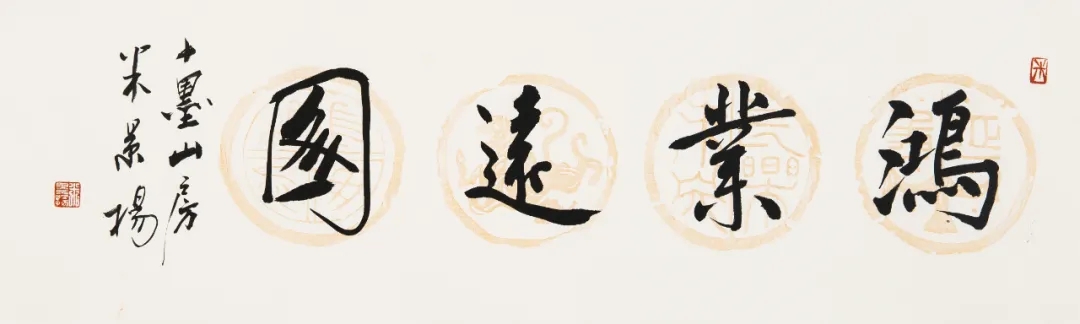 鴻業遠圖
十墨山房
米景揚
米